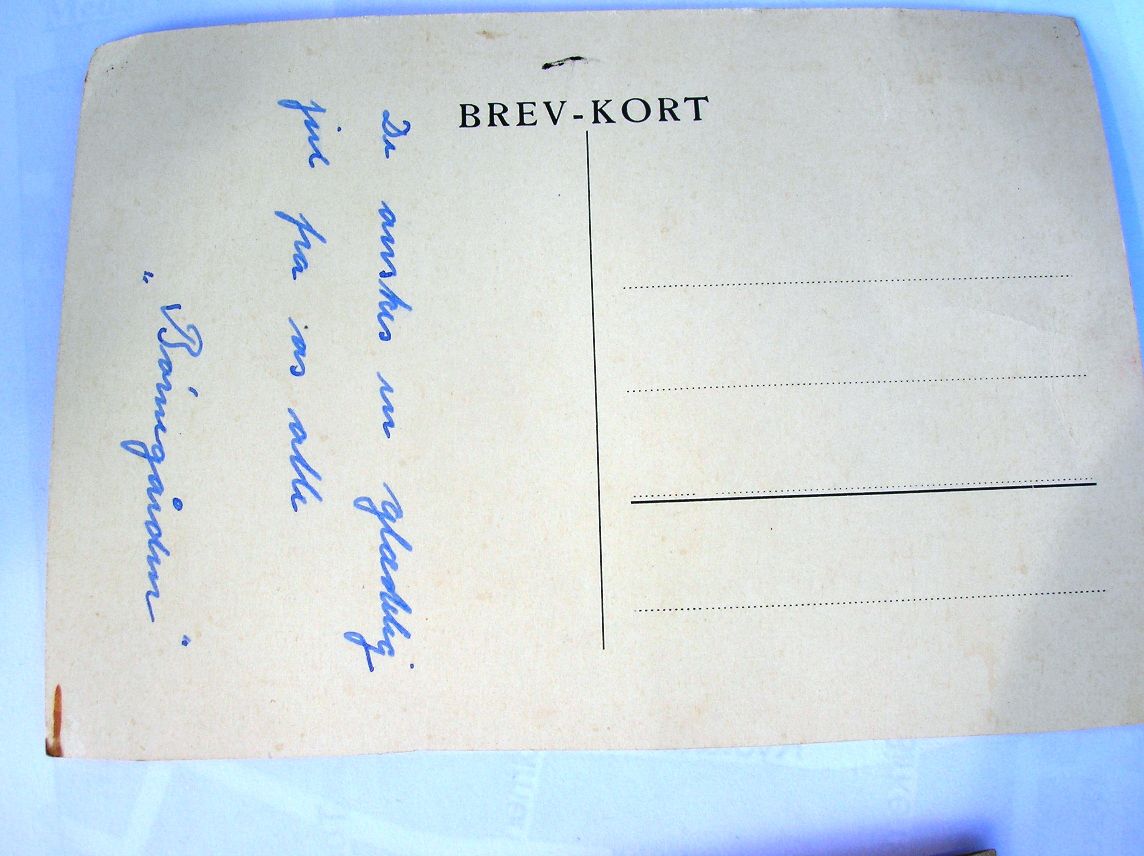 BREV-KORT
De ønskes en glædelig
jul fra os alle
"Børnegården"